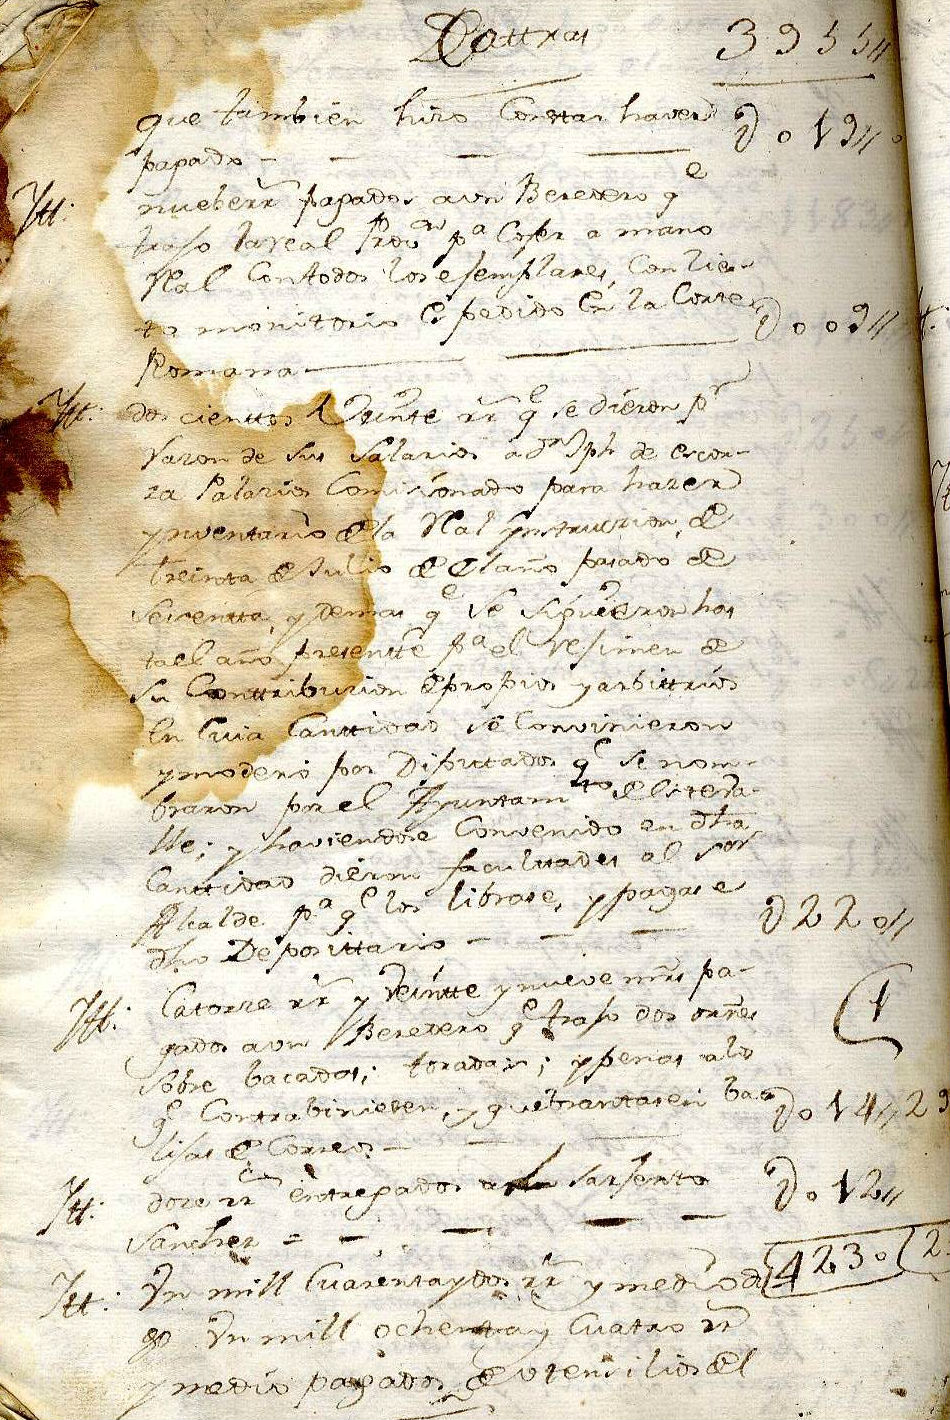 De attras 3955ll
que tambien hizo Constar haver
pagado — — — — D019ll
Itt: nueberr.s pagados a un Beredero q.e
trajo la real Prov.on p.a Cojer a mano
Ral Con todos los ejemplares, Con lier-
to monitorio Espedido En la Corte
Romana — D009ll
Itt: doscienttos Veinte rr.s q.e se dieron p.r
razon de sus Salarios a d.n Jph de escor-
za Palacios Comisionado para hazer
ynventario de la Ral ynstruzion, de
treinta de Julio de el año pasado de
sesentta, y demas q.e se siguieron has
ta el año presentte p.a el rejimen de
su Conttribuzion de propios y arbittrios
En Cuia Canttidad se Convinieron
y modero por Diputados q.e se nom-
braron por el Ayuntam.to de este va-
lle; y haviendose Convenido en dha
Canttidad dieron facultades al Sor
Alcalde p.a q.e los librase, y pagase
dho Deposittario — — — D220ll
Itt: Catorze rr.s y Veintte y nueve mrs pa-
gados a un Beredero q.e trajo dos orn.es
sobre bacadas; toradas; y penas a los
q.e Contrabiniesen, y quebrantasen ba-
lijas de Correos — — — D014ll29
Itt: doze rr.s entregados al Sarjento
Sanchez = — — — — D012ll
4230
Itt: Un mill Cuarenta y dos rr.s y medio di
go Un mill ochenta y Cuatro rr.s
y medio pagados de Utensilios del